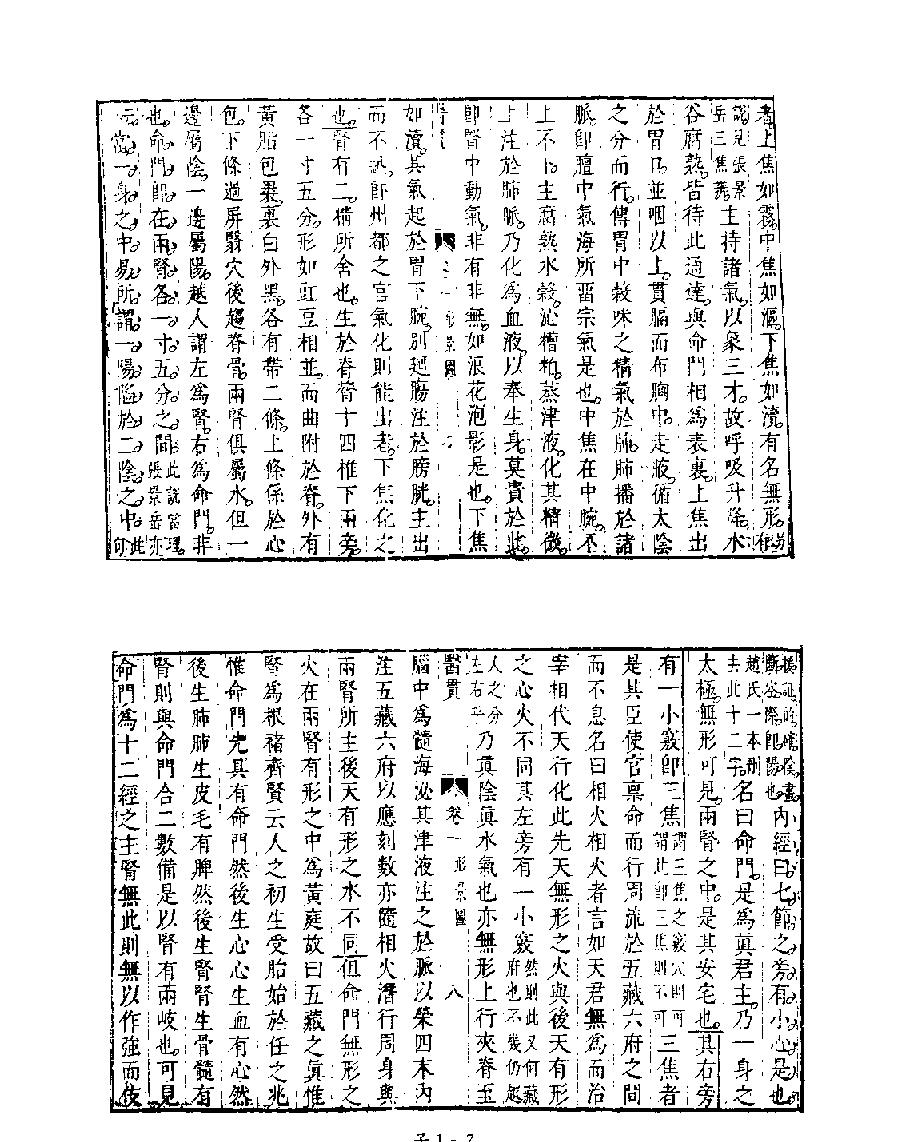 者上焦如霧中焦如漚下焦如瀆有名無形
認見張景岳三焦義主持諸氣以象三才故呼吸升降水
谷腐熟皆待此通達與命門相為表裏上焦出
於胃口並咽以上貫膈而布胸中走腋循太陰
之分而行傳胃中穀味之精氣於肺肺播於諸
脈即膻中氣海所畱宗氣是也中焦在中脘不
上不下主腐熟水穀泌糟粕蒸津液化其精微
上注於肺脈乃化為血液以奉生身莫貴於此
即腎中動氣非有非無如浪花泡影是也下焦
醫貫
卷一 形景圖
如瀆其氣起於胃下脘別廻腸注於膀胱主出
而不納即州都之官氣化則能出者下焦化之
也腎有二精所舍也生於脊膂十四椎下兩旁
各一寸五分形如豇豆相並而曲附於脊外有
黃脂包裹裏白外黑各有帶二條上條係於心
包下條過屏翳穴後趨脊骨兩腎俱屬水但一
邊屬陰一邊屬陽越人謂左為腎右為命門非
也命門即在兩腎各一寸五分之間此説當理張景岳亦
當一身之中易所謂一陽陷於二陰之中此
內經曰七節之旁有小心是也
趙氏一本刪去此十二字名曰命門是為真君主乃一身之
太極無形可見兩腎之中是其安宅也其右旁
有一小竅即三焦謂三焦之竅穴則可謂此即三焦則不可三焦者
是其臣使官稟命而行周流於五藏六府之間
而不息名曰相火相火者言如天君無為而治
宰相代天行化此先天無形之火與後天有形
之心火不同其左旁有一小竅然則此又何藏府也不幾仍起
人之分左右乎乃真陰真水氣也亦無形上行夾脊至
醫貫
卷一 形景圖 八
腦中為髓海泌其津液注之於脈以榮四末內
注五藏六府以應刻數亦隨相火潛行周身與
兩腎所主後天有形之水不同但命門無形之
火在兩腎有形之中為黃庭故曰五藏之真惟
腎為根褚齊賢云人之初生受胎始於任之兆
惟命門先具有命門然後生心心生血有心然
後生肺肺生皮毛有脾然後生腎腎生骨髓有
腎則與命門合二數備是以腎有兩岐也可見
命門為十二經之主腎無此則無以作強而伎
子1-7